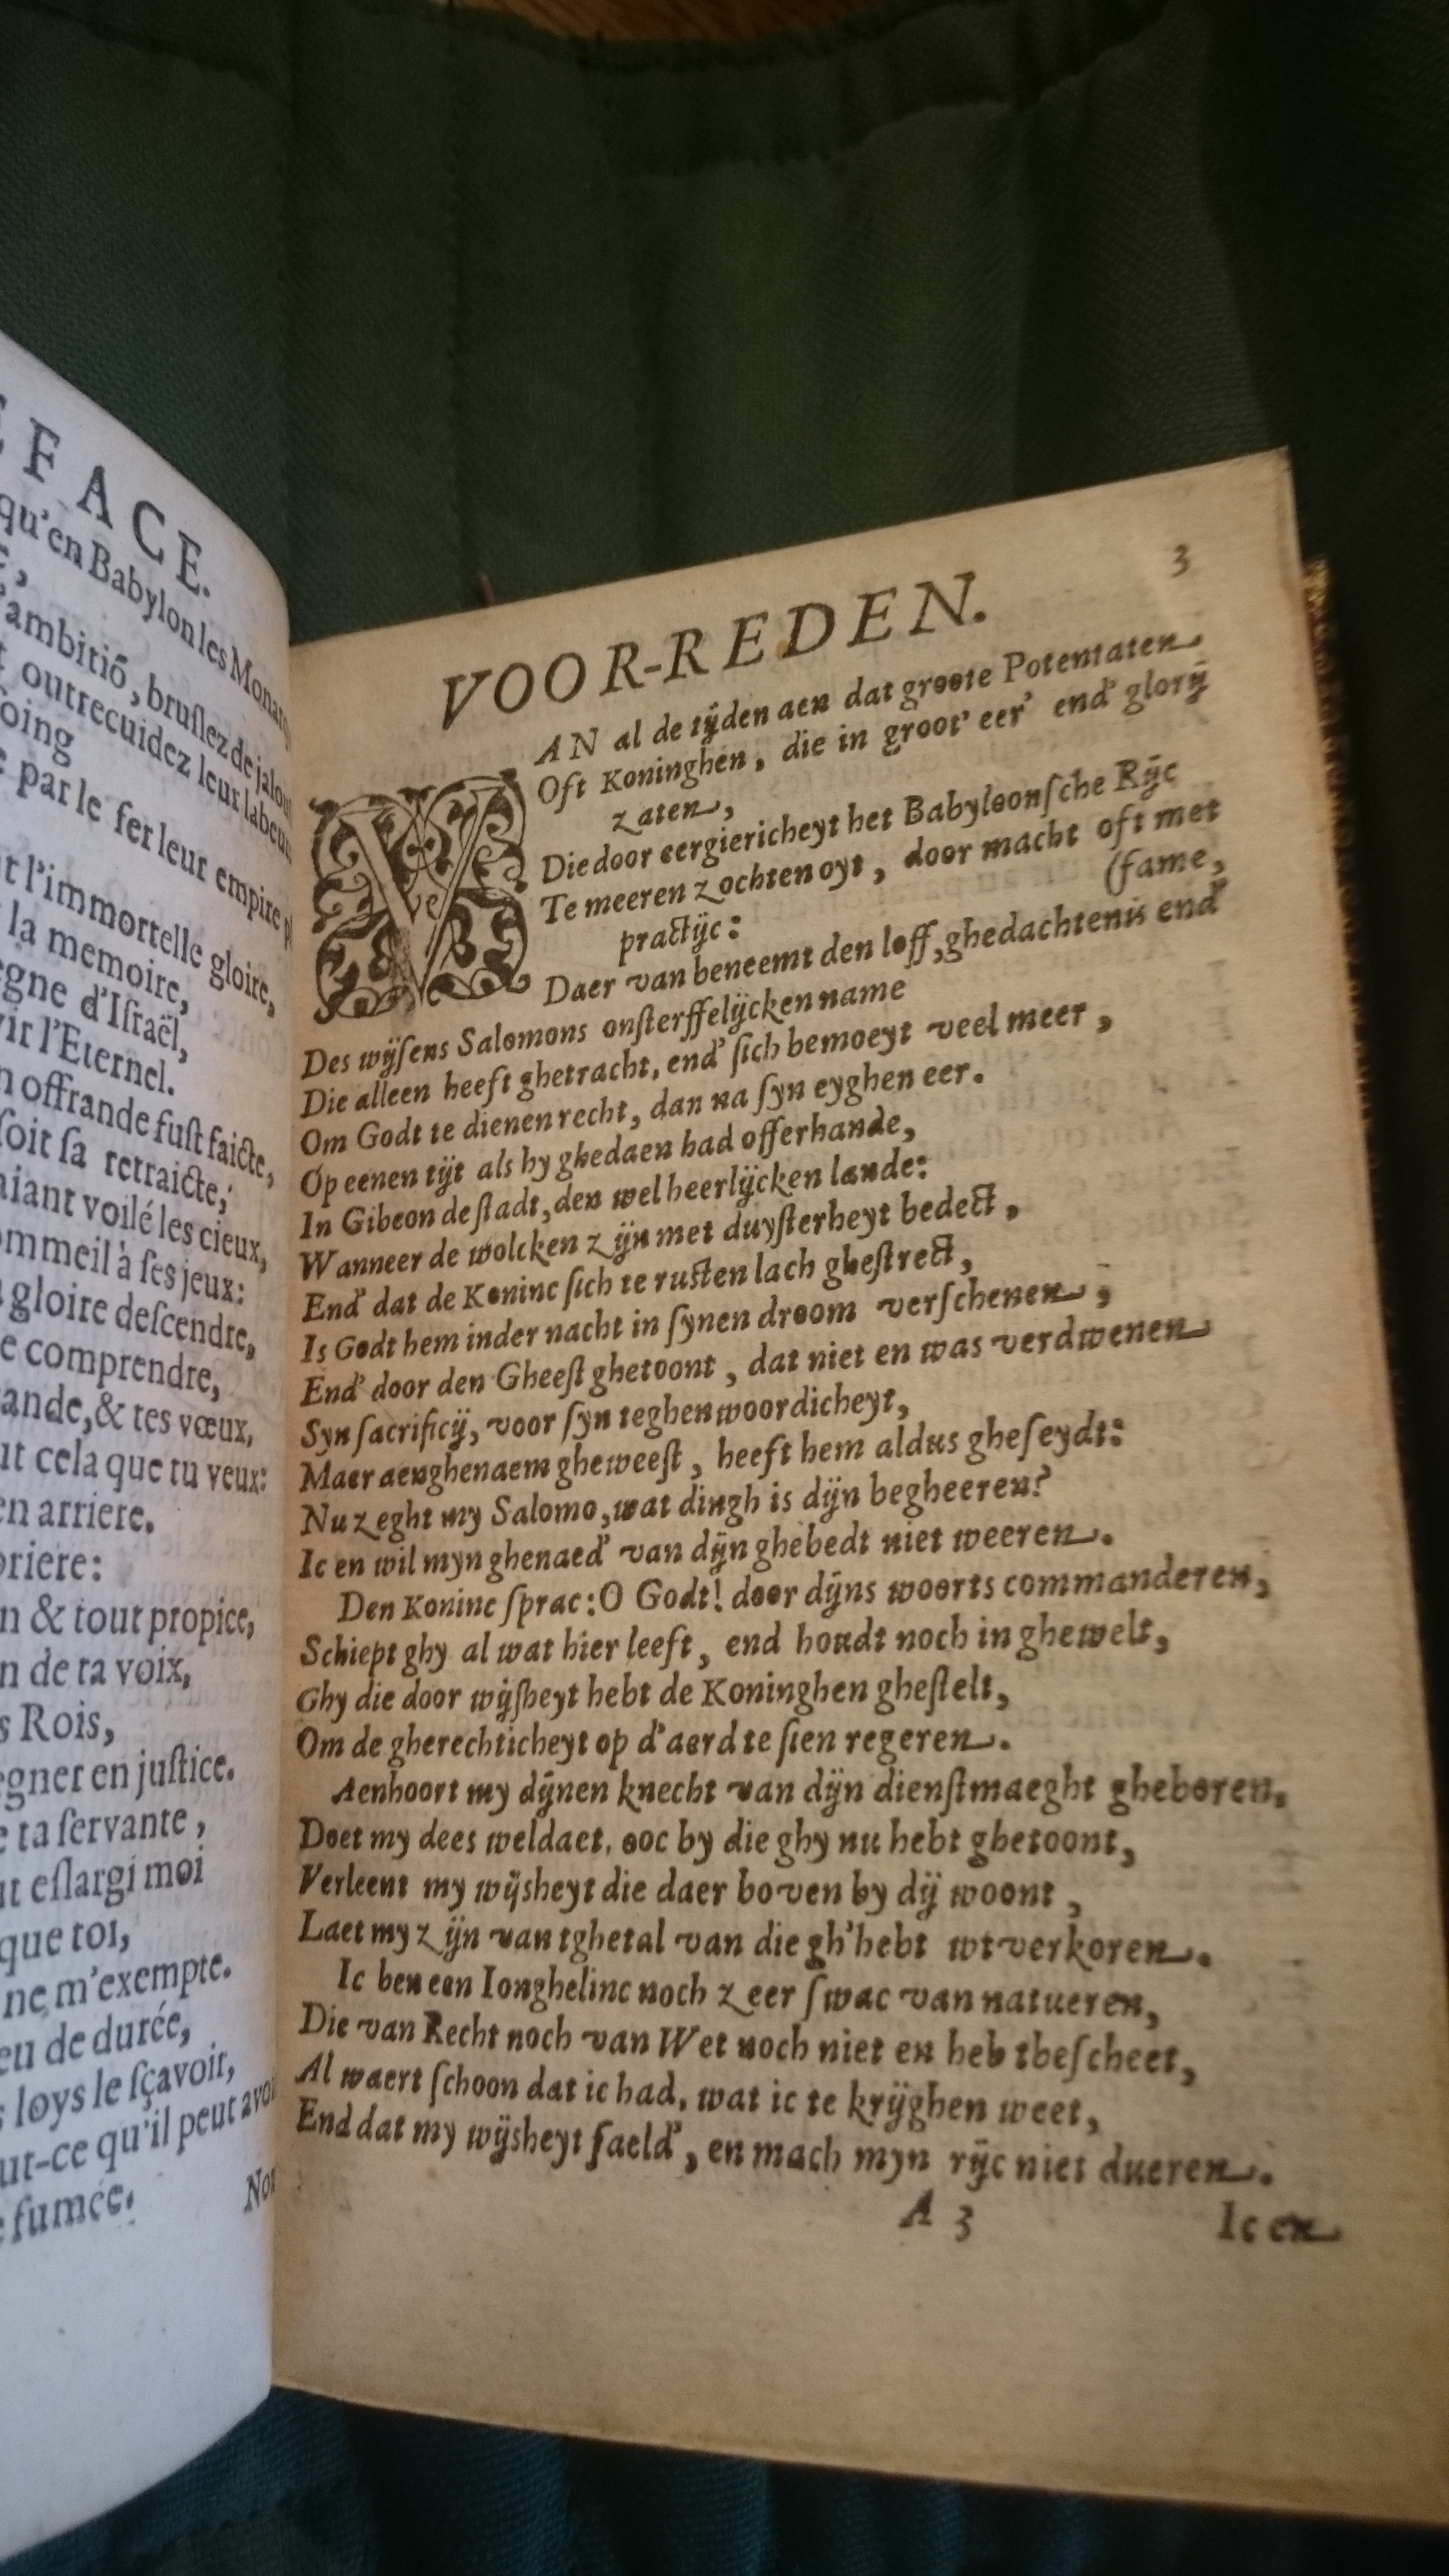 FACE.
qu'en Babylon les Monar
ambitiõ, bruſlez de jalou
outrecuidez leur labeur
oing
par le fer leur empire
t l'immortelle gloire,
la memoire,
egne d'Iſraël,
vir l'Eternel.
n offrande fuſt faicte,
ſoit ſa retraicte;
aiant voilé les cieux,
ommeil à ſes jeux:
gloire deſcendre,
e comprendre,
ande,& tes vœux,
ut cela que tu veux:
en arriere.
priere:
n & tout propice,
n de ta voix,
s Rois,
egner en juſtice.
e ta ſervante,
ut eſlargi moi
que toi,
ne m'exempte.
eu de durée,
s loys le ſçavoir,
ut-ce qu'il peut avoi
fumée.
Non
3
VOOR-REDEN.
VAN al de tijden aen dat groote Potentaten
Oft Koninghen, die in groot' eer' end' glorij
zaten,
Die door eergiericheyt het Babyloonſche Rijc
Te meeren zochten oyt, door macht oft met
practijc:
(fame,
Daer van beneemt den loff,ghedachtenis end'
Des wijſens Salomons onſterffelijcken name
Die alleen heeft ghetracht, end' ſich bemoeyt veel meer,
Om Godt te dienen recht, dan na ſyn eyghen eer.
Op eenen tijt als hy ghedaen had offerhande,
In Gibeon de ſtadt,den wel heerlijcken lande:
Wanneer de wolcken zijn met duyſterheyt bedect,
End' dat de Koninc ſich te ruſten lach gheſtrect,
Is Godt hem inder nacht in ſynen droom verſchenen,
End' door den Gheeſt ghetoont, dat niet en was verdwenen
Syn ſacrificij, voor ſyn teghenwoordicheyt,
Maer aenghenaem gheweeſt, heeft hem aldus gheſeydt:
Nu zeght my Salomo,wat dingh is dijn begheeren?
Ic en wil myn ghenaed' van dijn ghebedt niet weeren.
Den Koninc ſprac:O Godt! door dijns woorts commanderen,
Schiept ghy al wat hier leeft, end houdt noch in ghewelt,
Ghy die door wijſheyt hebt de Koninghen gheſtelt,
Om de gherechticheyt op d'aerd te ſien regeren.
Aenhoort my dijnen knecht van dijn dienſtmaeght gheboren,
Doet my dees weldaet, ooc by die ghy nu hebt ghetoont,
Verleent my wijsheyt die daer boven by dij woont,
Laet my zijn van tghetal van die gh'hebt wtverkoren.
Ic ben een Ionghelinc noch zeer ſwac van natueren,
Die van Recht noch van Wet noch niet en heb tbeſcheet,
Al waert ſchoon dat ic had, wat ic te krijghen weet,
End dat my wijsheyt faeld', en mach myn rijc niet dueren.
A 3
Ic en